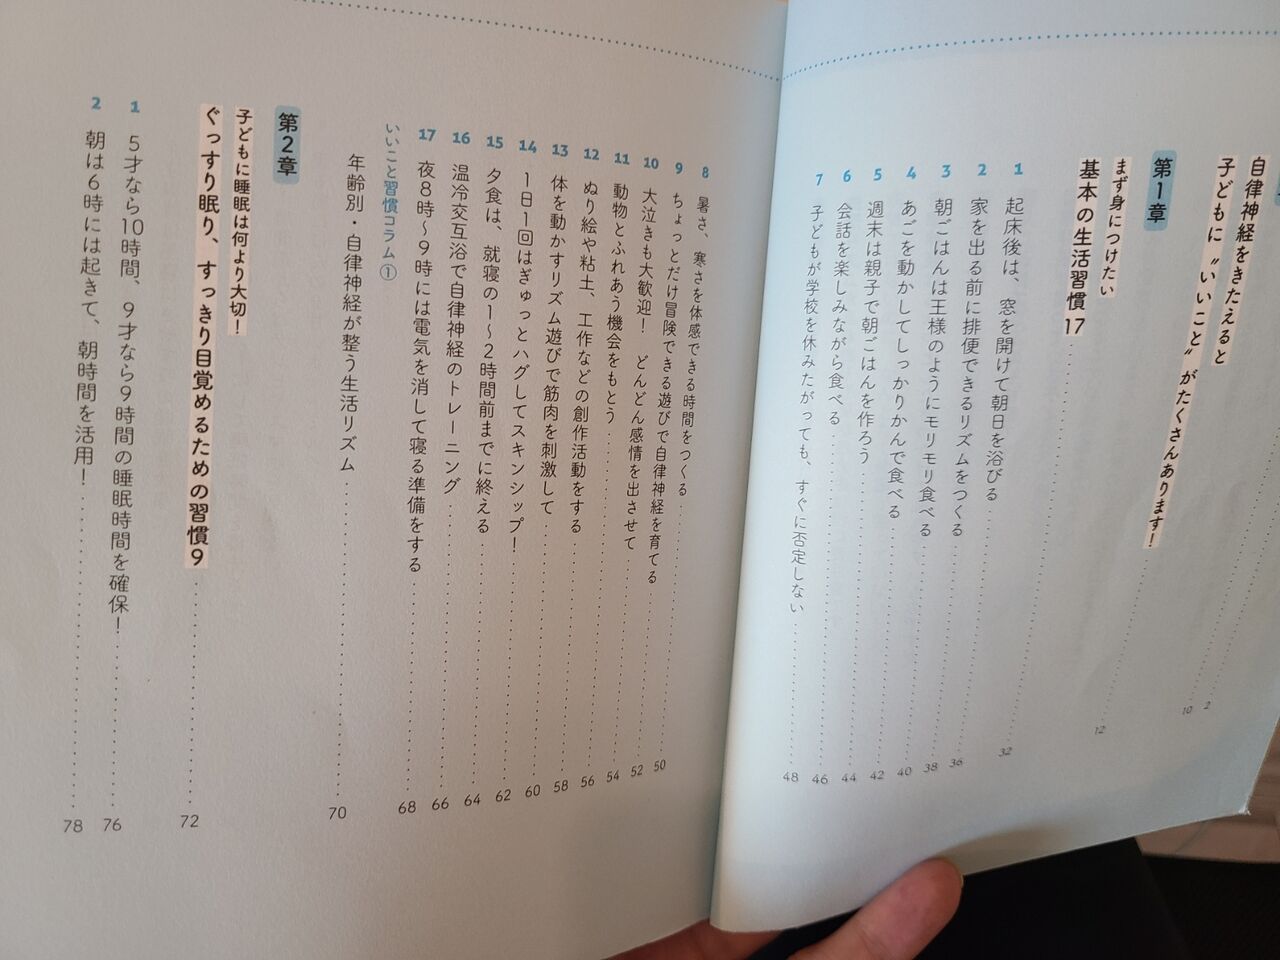 自律神経をきたえると
子どもに〝いいこと〟がたくさんあります!
2
10
第1章
まず身につけたい
基本の生活習慣17
12
1 起床後は、窓を開けて朝日を浴びる
32
2 家を出る前に排便できるリズムをつくる
36
3 朝ごはんは王様のようにモリモリ食べる
38
4 あごを動かしてしっかりかんで食べる
40
5 週末は親子で朝ごはんを作ろう
42
6 会話を楽しみながら食べる
44
46
7 子どもが学校を休みたがっても、すぐに否定しない
48
8 暑さ、寒さを体感できる時間をつくる
50
9 ちょっとだけ冒険できる遊びで自律神経を育てる
52
10 大泣きも大歓迎! どんどん感情を出させて
54
11 動物とふれあう機会をもとう
56
12 ぬり絵や粘土、工作などの創作活動をする
58
13 体を動かすリズム遊びで筋肉を刺激して
60
14 1日1回はぎゅっとハグしてスキンシップ!
62
15 夕食は、就寝の1〜2時間前までに終える
64
16 温冷交互浴で自律神経のトレーニング
66
17 夜8時〜9時には電気を消して寝る準備をする
68
いいこと習慣コラム①
年齢別・自律神経が整う生活リズム
70
第2章
子どもに睡眠は何より大切!
ぐっすり眠り、すっきり目覚めるための習慣9
72
1 5才なら10時間、9才なら9時間の睡眠時間を確保!
76
2 朝は6時には起きて、朝時間を活用!
78